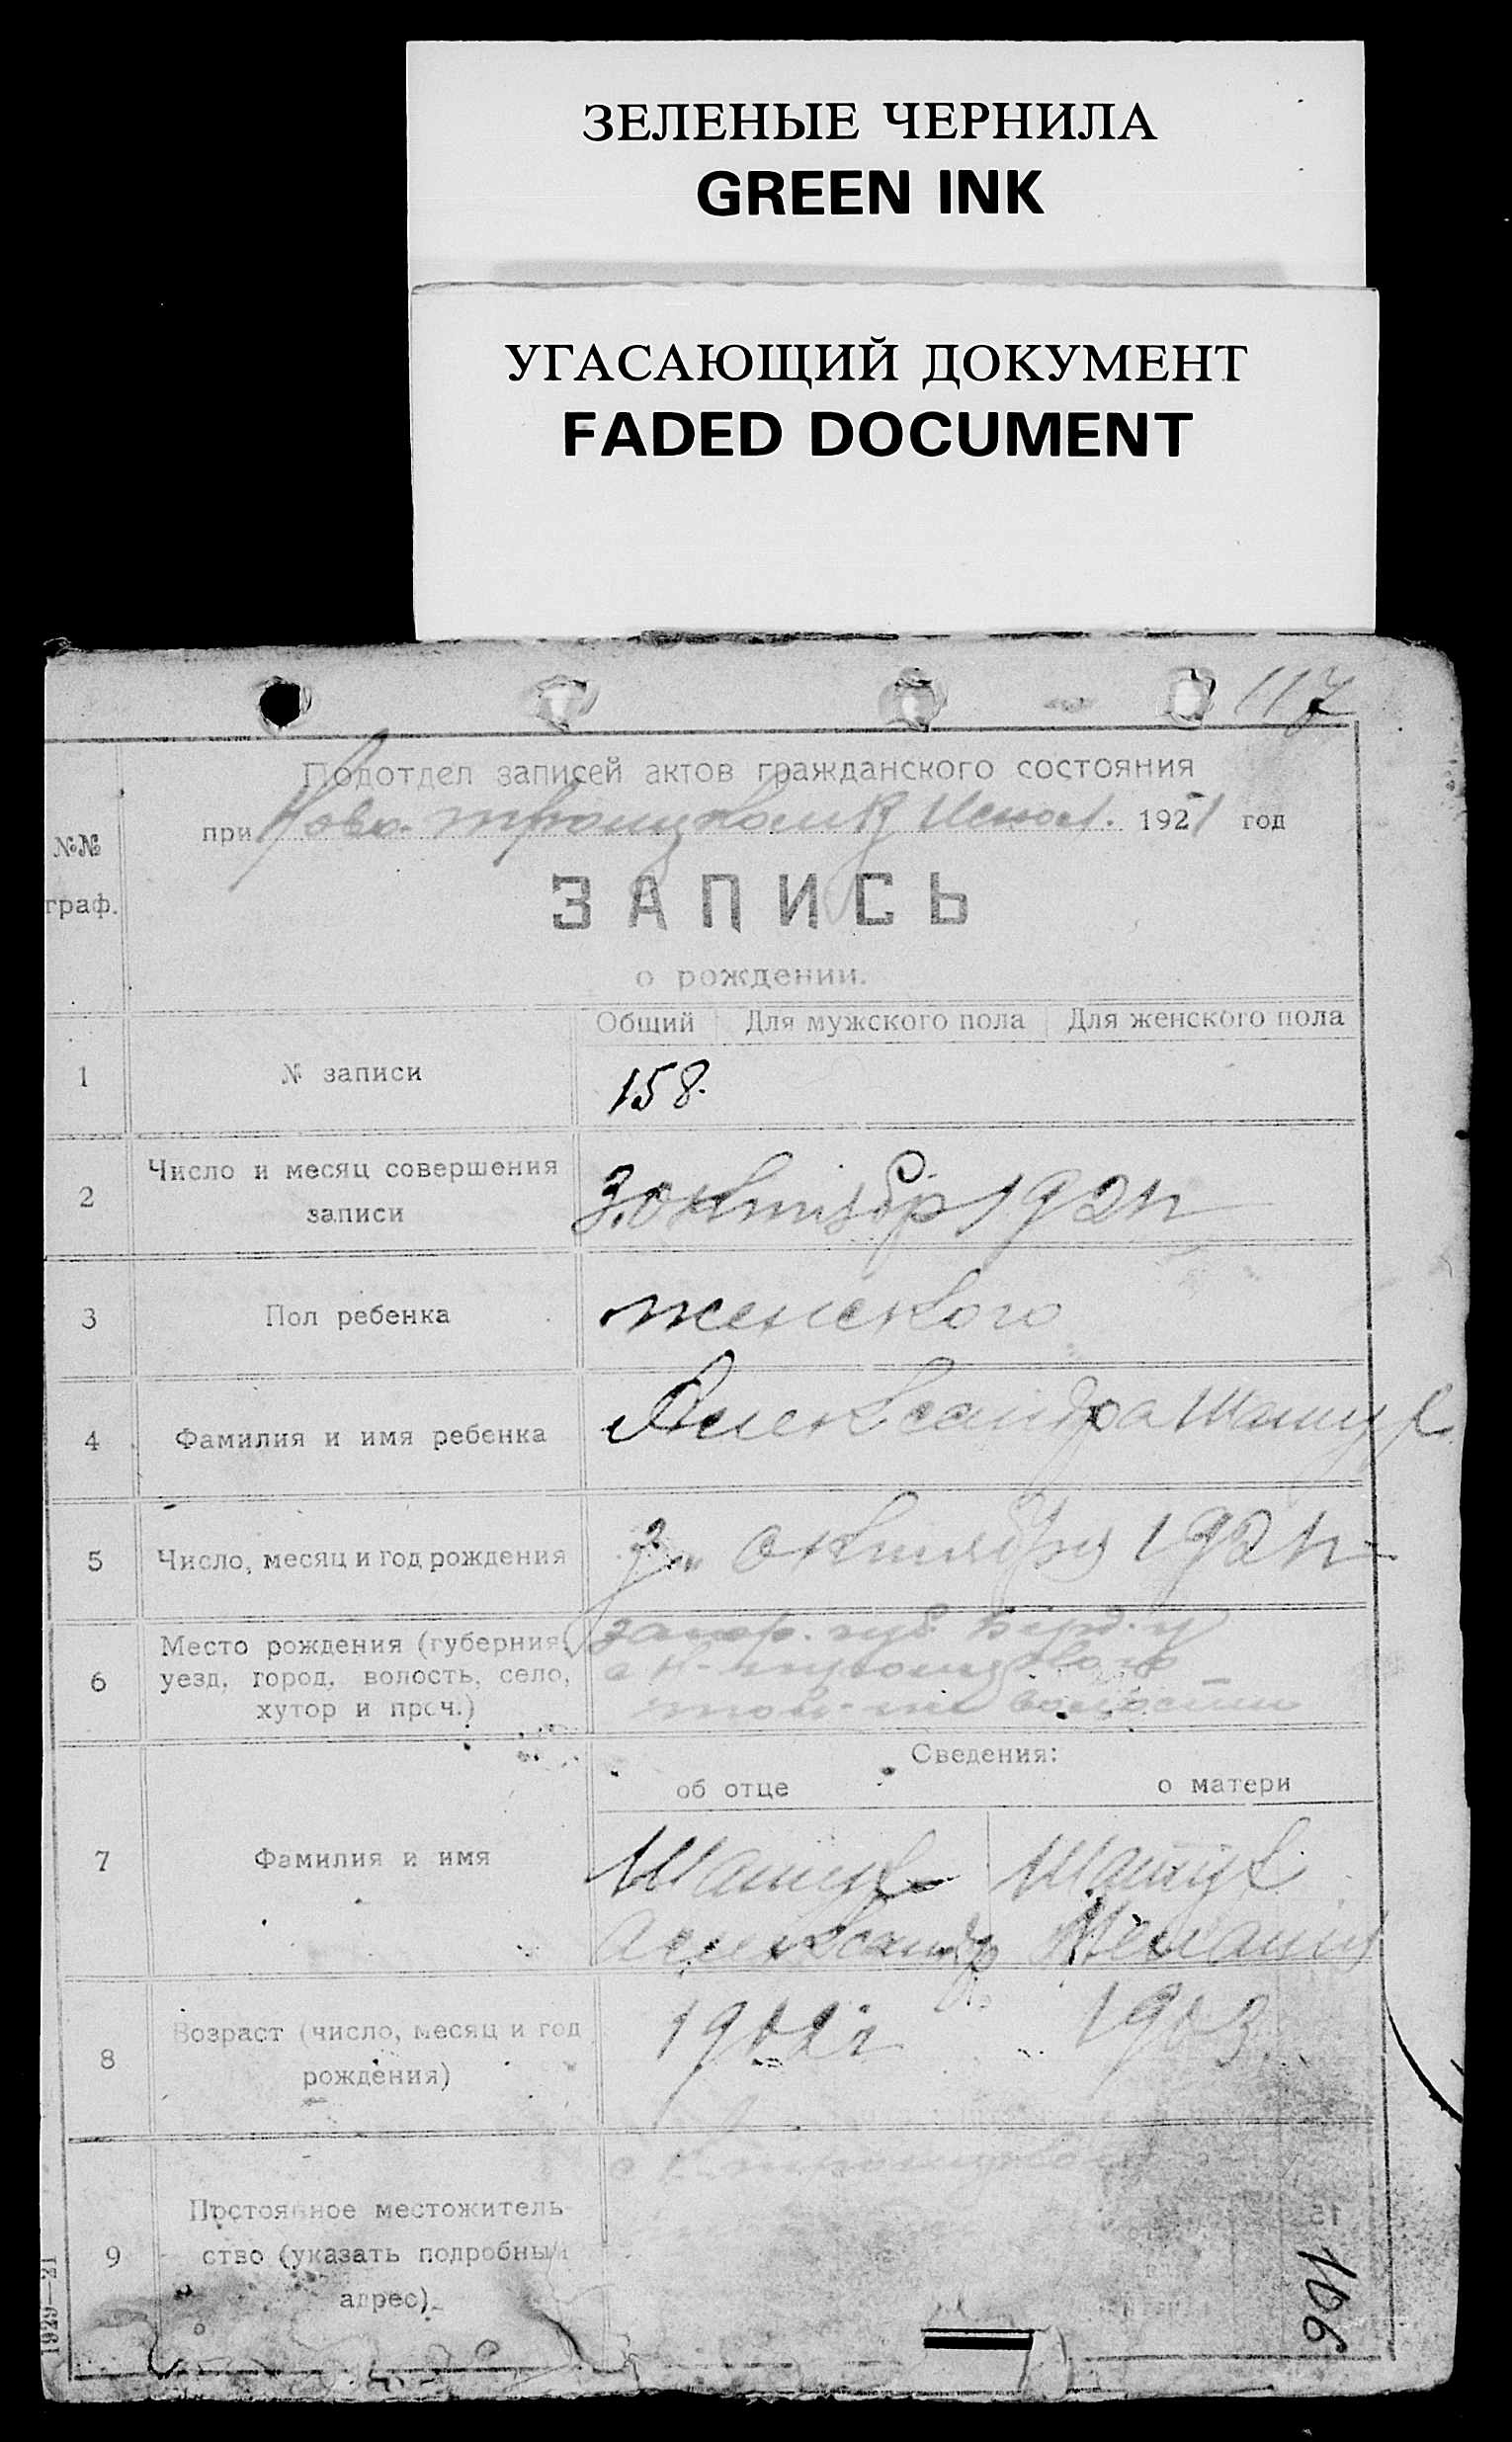 ЗЕЛЕНЫЕ ЧЕРНИЛА
GREEN INK
УГАСАЮЩИЙ ДОКУМЕНТ
FADED DOCUMENT
117
Подотдел записей актов гражданского состояния
№№ граф.
при Ново-троицком 1921 год
ЗАПИСЬ
о рождении.
Общий Для мужского пола Для женского пола
1 № записи 158.
2 Число и месяц совершения
записи
3 октябр 1921г
3 Пол ребенка женского
4 Фамилия и имя ребенка Александра Шашух
5 Число, месяц и год рождения 3 октября 1921г
6 Место рождения (губерния,
уезд, город, волость, село,
хутор и проч.)
запор. губ. Берд. у
с Н-
той-же волости
Сведения:
об отце о матери
7 Фамилия и имя
Шашух Шашух
Александр
8 Возраст (число, месяц и год
рождения)
1902г 1903
9 Постоянное местожитель-
ство (указать подробный
адрес)
1929—21
106